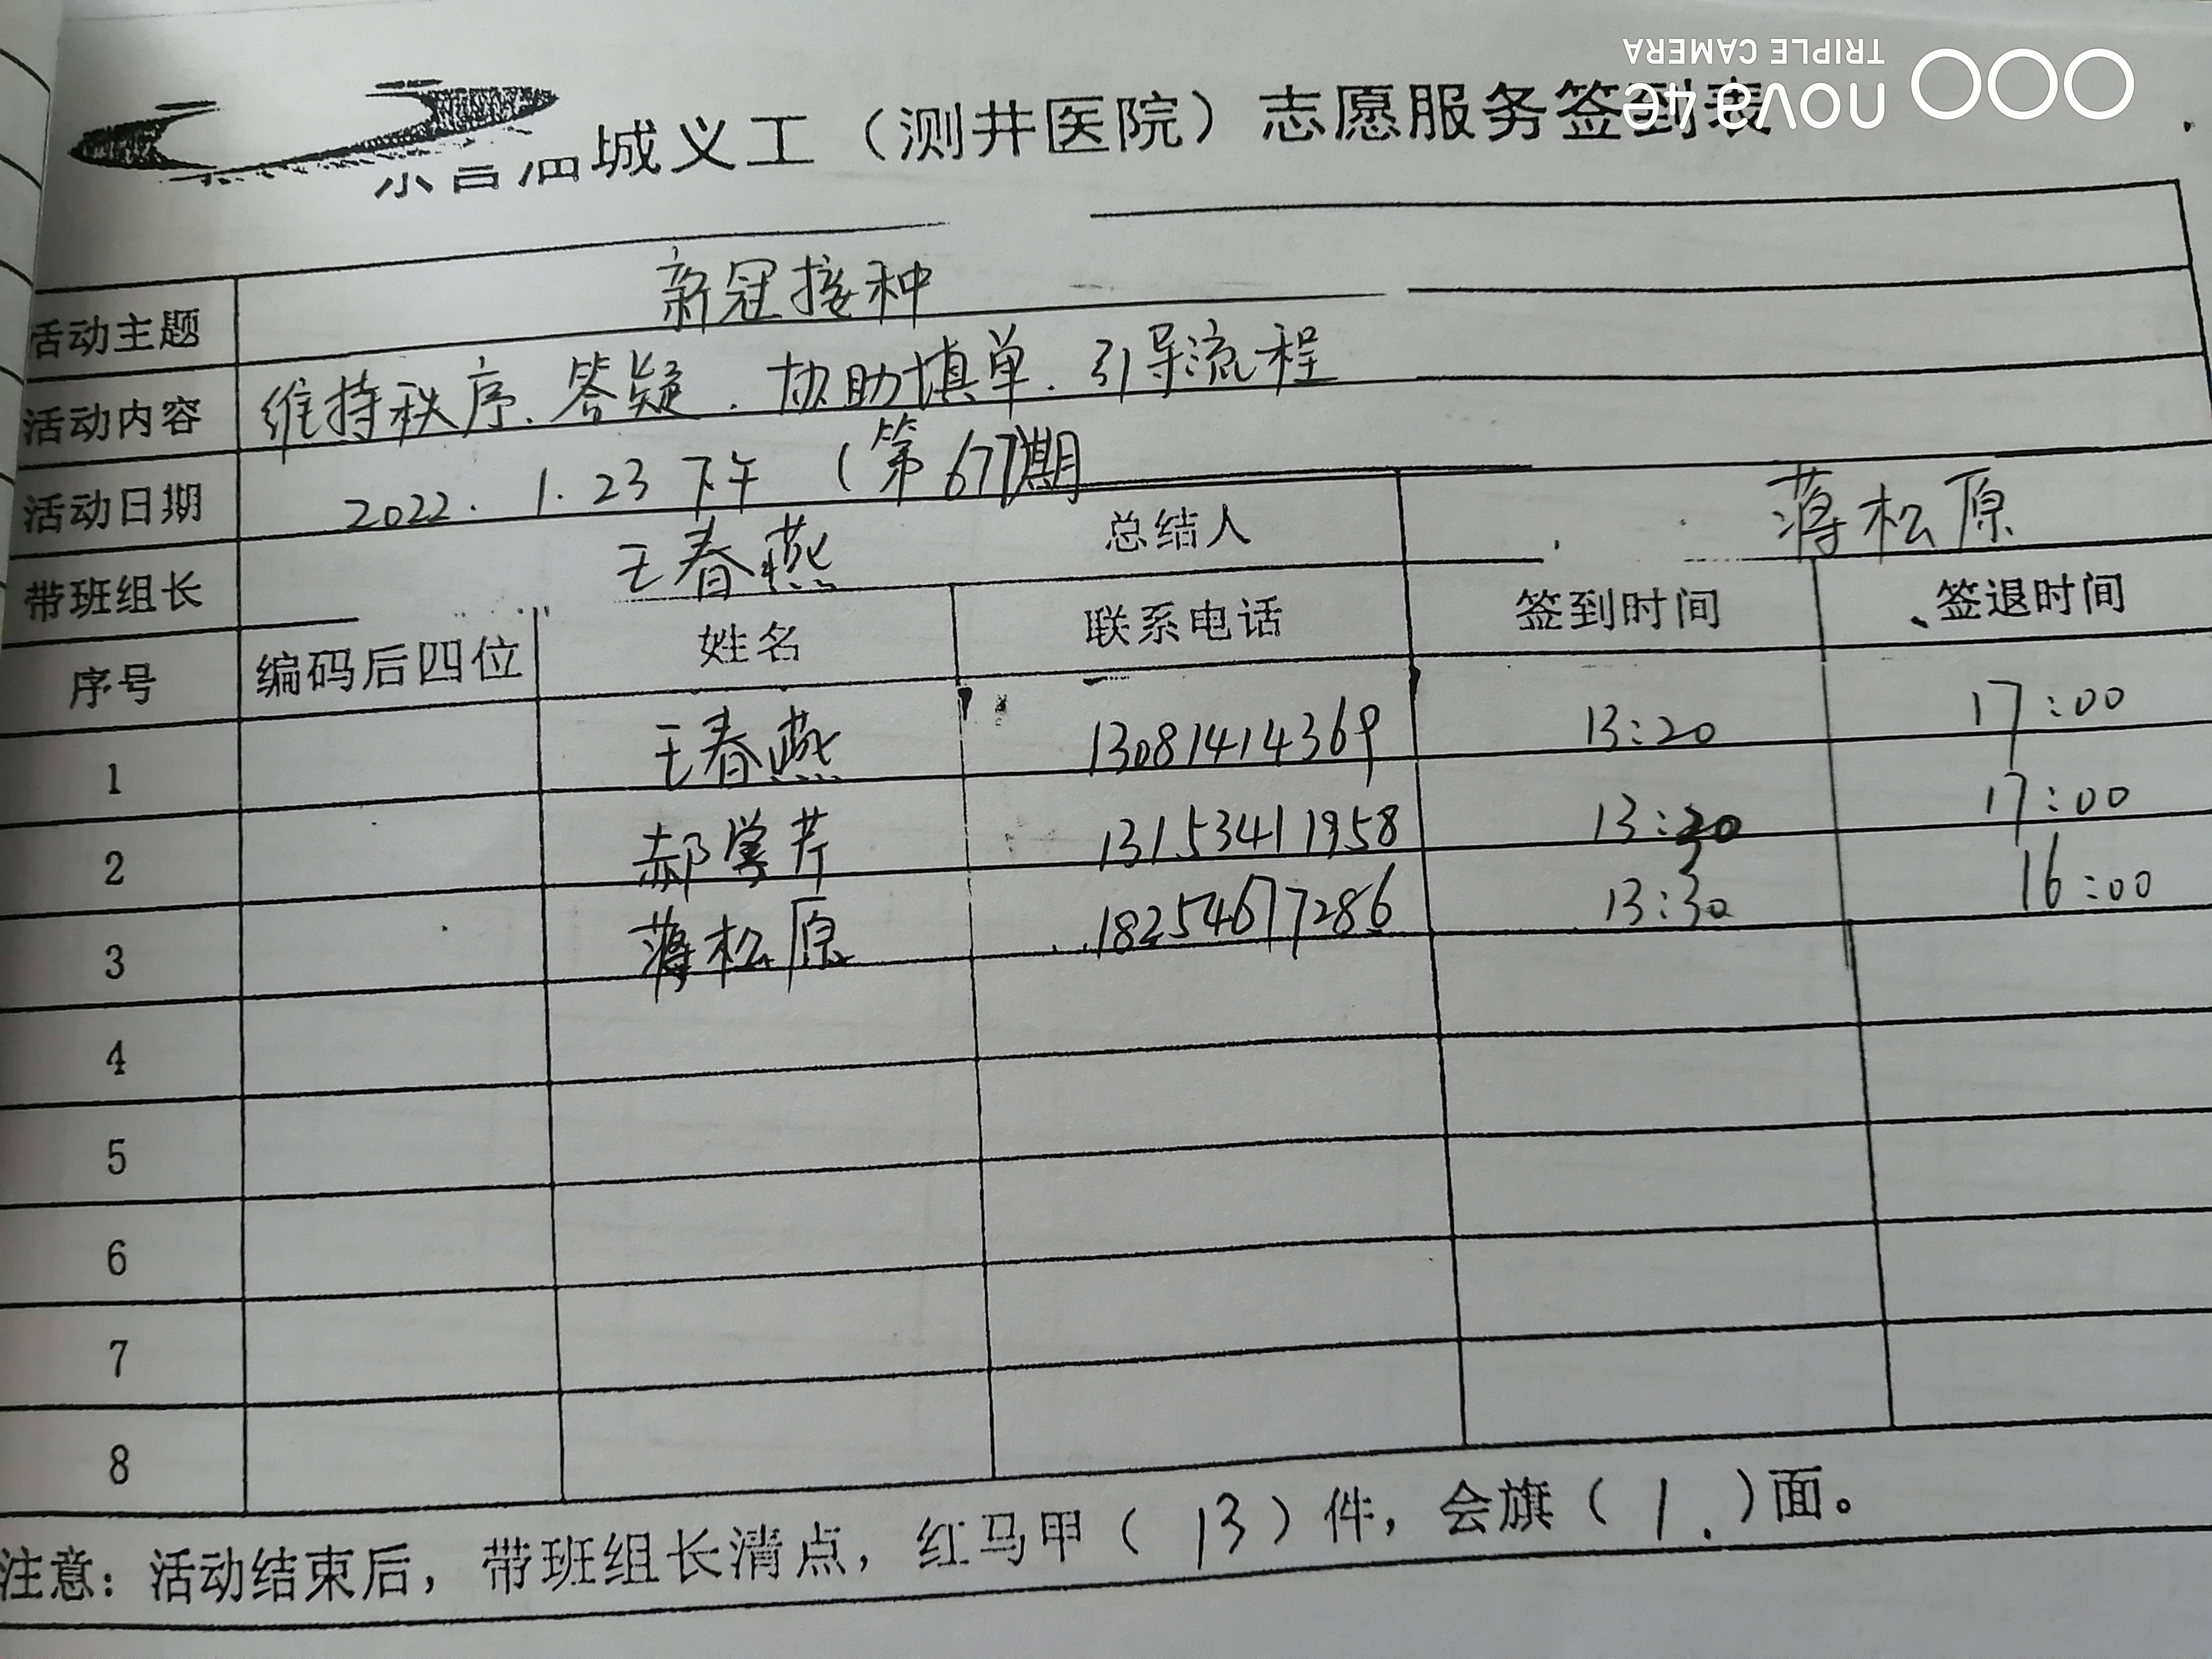 城义工（测井医院）志愿服务签到表
nova 4e
TRIPLE CAMERA
活动主题 新冠接种
活动内容 维持秩序、答疑、协助填单、引导流程
活动日期 2022.1.23 下午 （第677期
带班组长 王春燕 总结人 蒋松原
序号 编码后四位 姓名 联系电话 签到时间 签退时间
1 王春燕 13081414369 13:20 17:00
2 郝学芹 13153411958 13:20 17:00
3 蒋松原 18254677286 13:30 16:00
4
5
6
7
8
注意：活动结束后，带班组长清点，红马甲（13）件，会旗（1.）面。